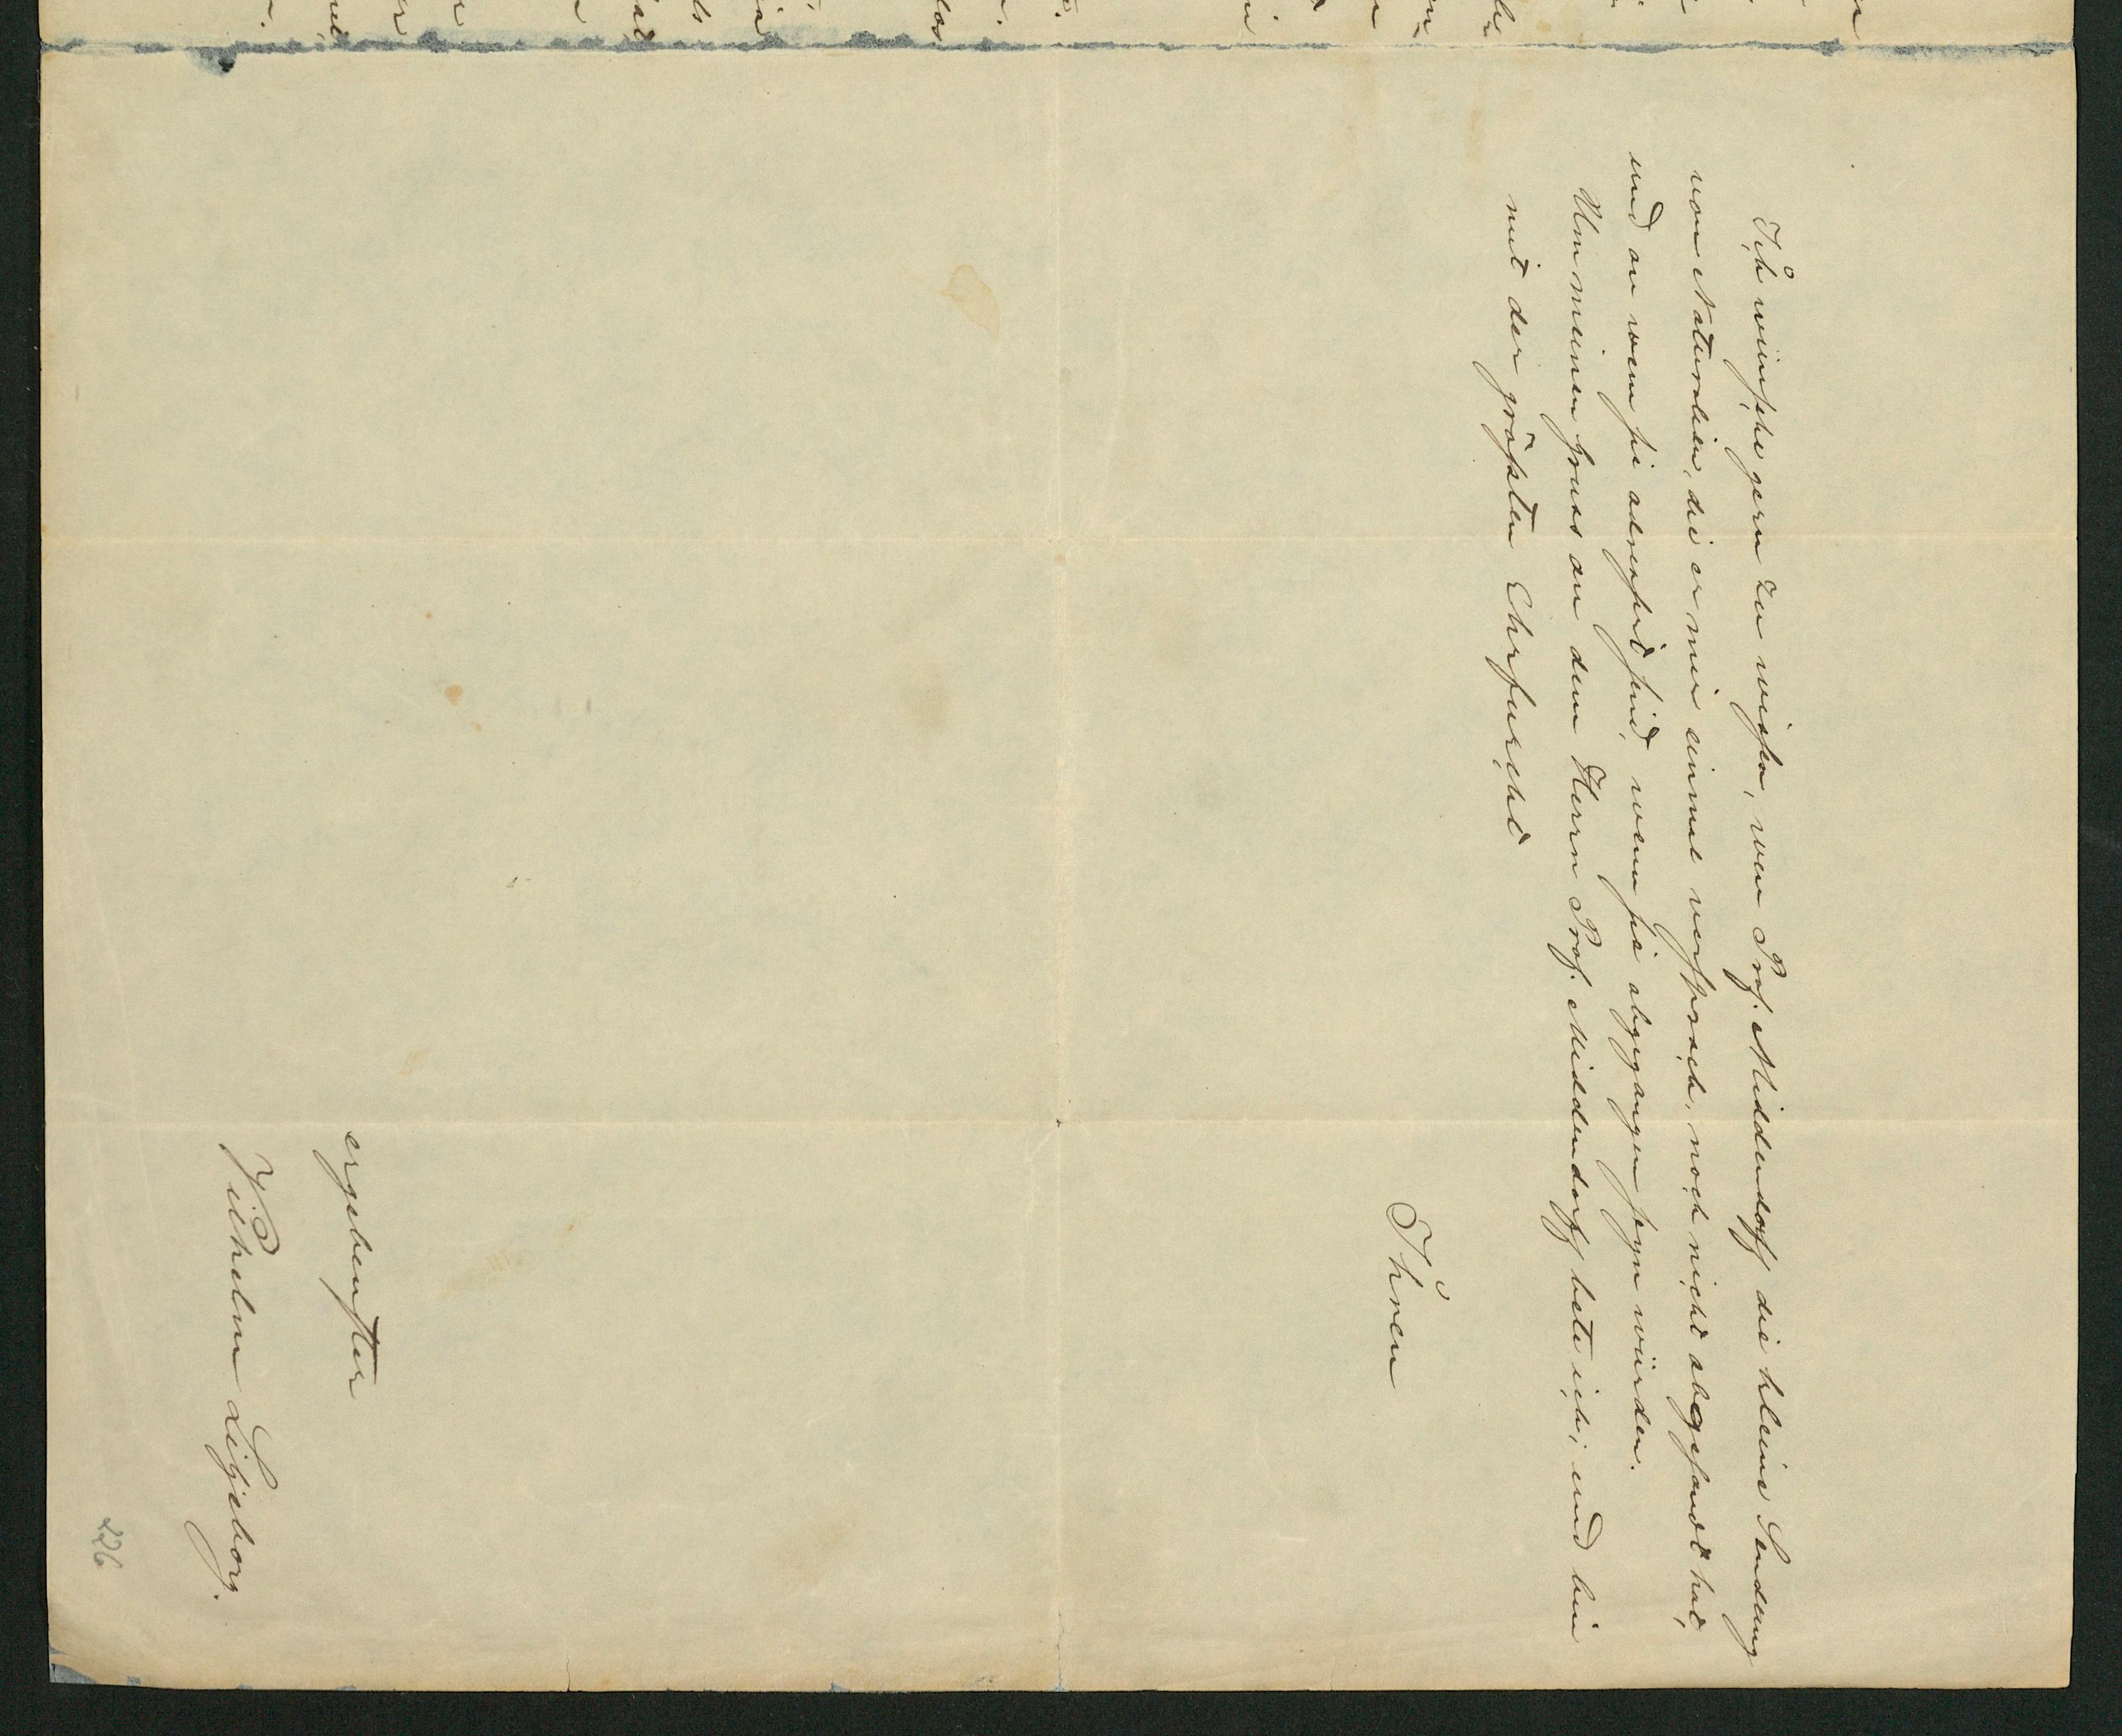 Ich wünsche gern zu wissen, wen Prof. Middendorff die kleine Sendung
von Naturalien, die er mir einmal versprach, noch nicht abgesandt hat,
und an wem sie adressirt sind, wenn sie abgegangen seyn würden.
Um meinen Gruss an dem Herrn Prof. Middendorff bete ich; und bin
mit der grössten Ehrfurcht
Ihren
ergebenster
Vilhelm Liljeborg.
226